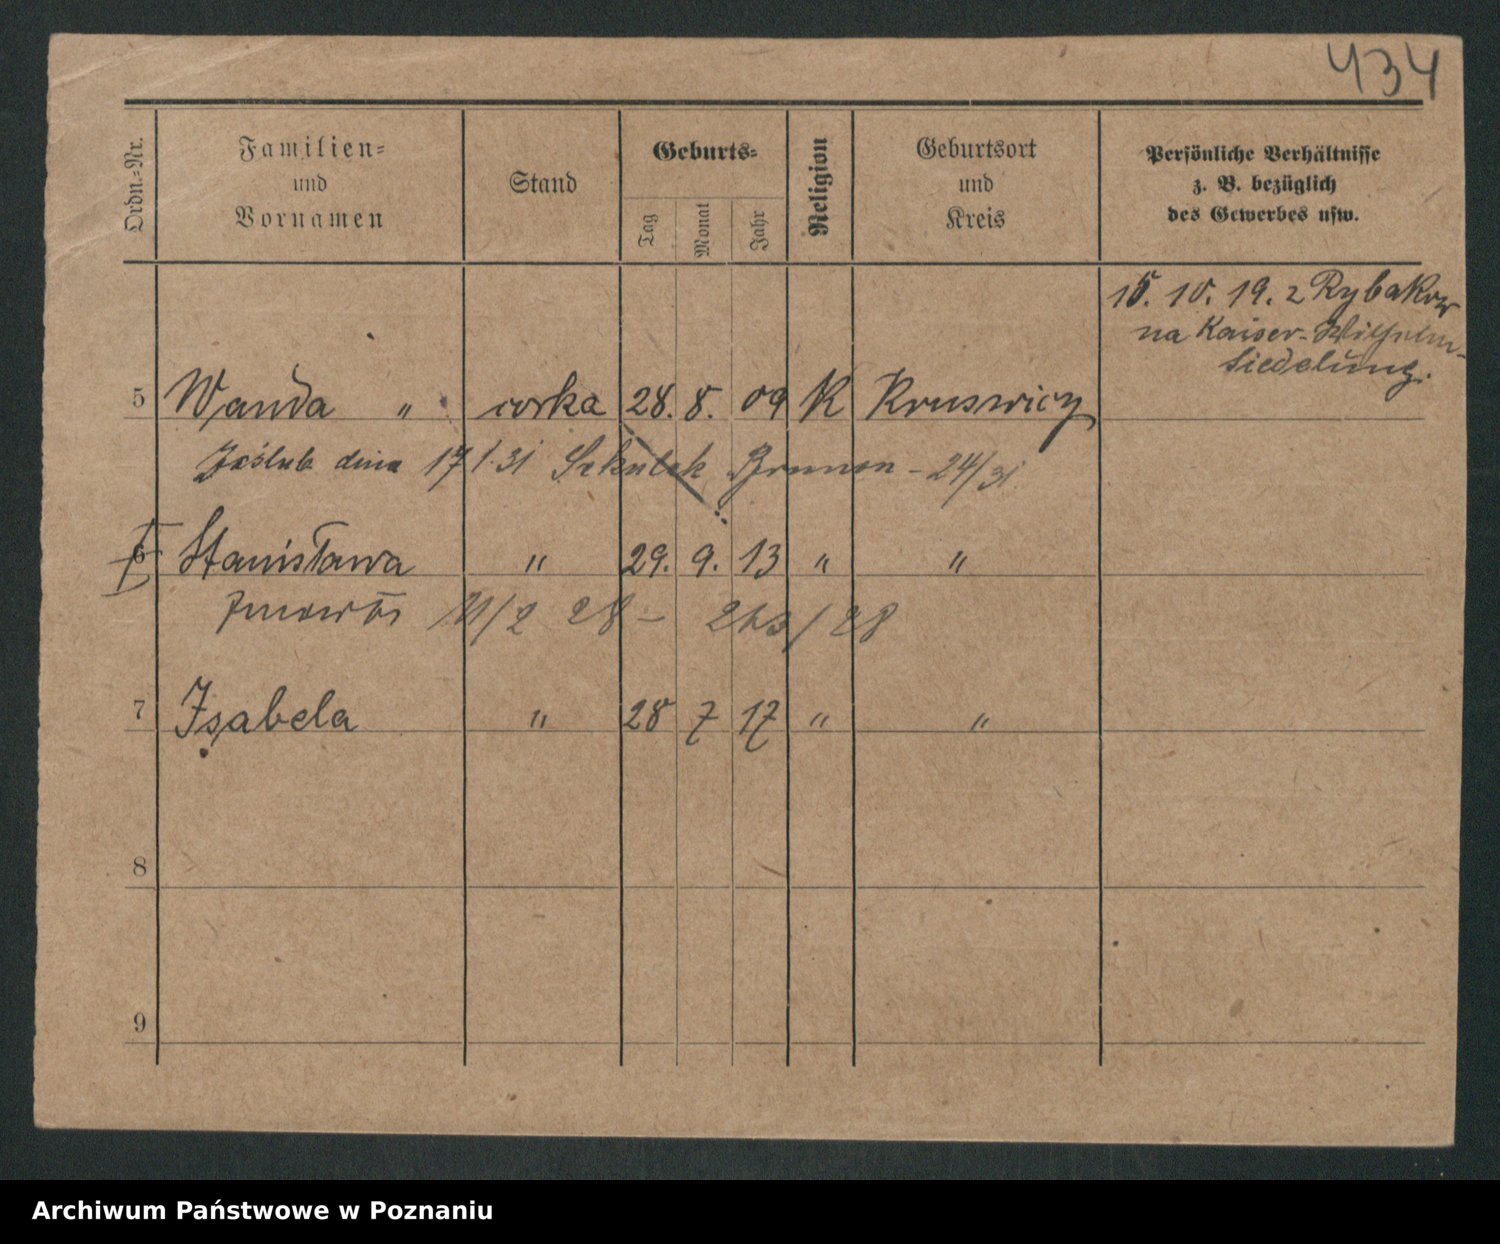 434
Ordn.-Nr.
Familien-
und
Vornamen
Stand
Geburts-
Tag
Monat
Jahr
Religion
Geburtsort
und
Kreis
Persönliche Verhältnisse
z. B. bezüglich
des Gewerbes usw.
15. 10. 19. z Rybaków
na Kaiser-Wilhelm-
Siedelung.
5 Wanda " córka 28. 8. 09 K Kruswicy
ślub dnia 17/1.31 Brunon - 24/31
6 Stanisława " 29. 9. 13 " "
11/2 28 - 263/28
7 Isabela " 28 7 17 " "
8
9
Archiwum Państwowe w Poznaniu